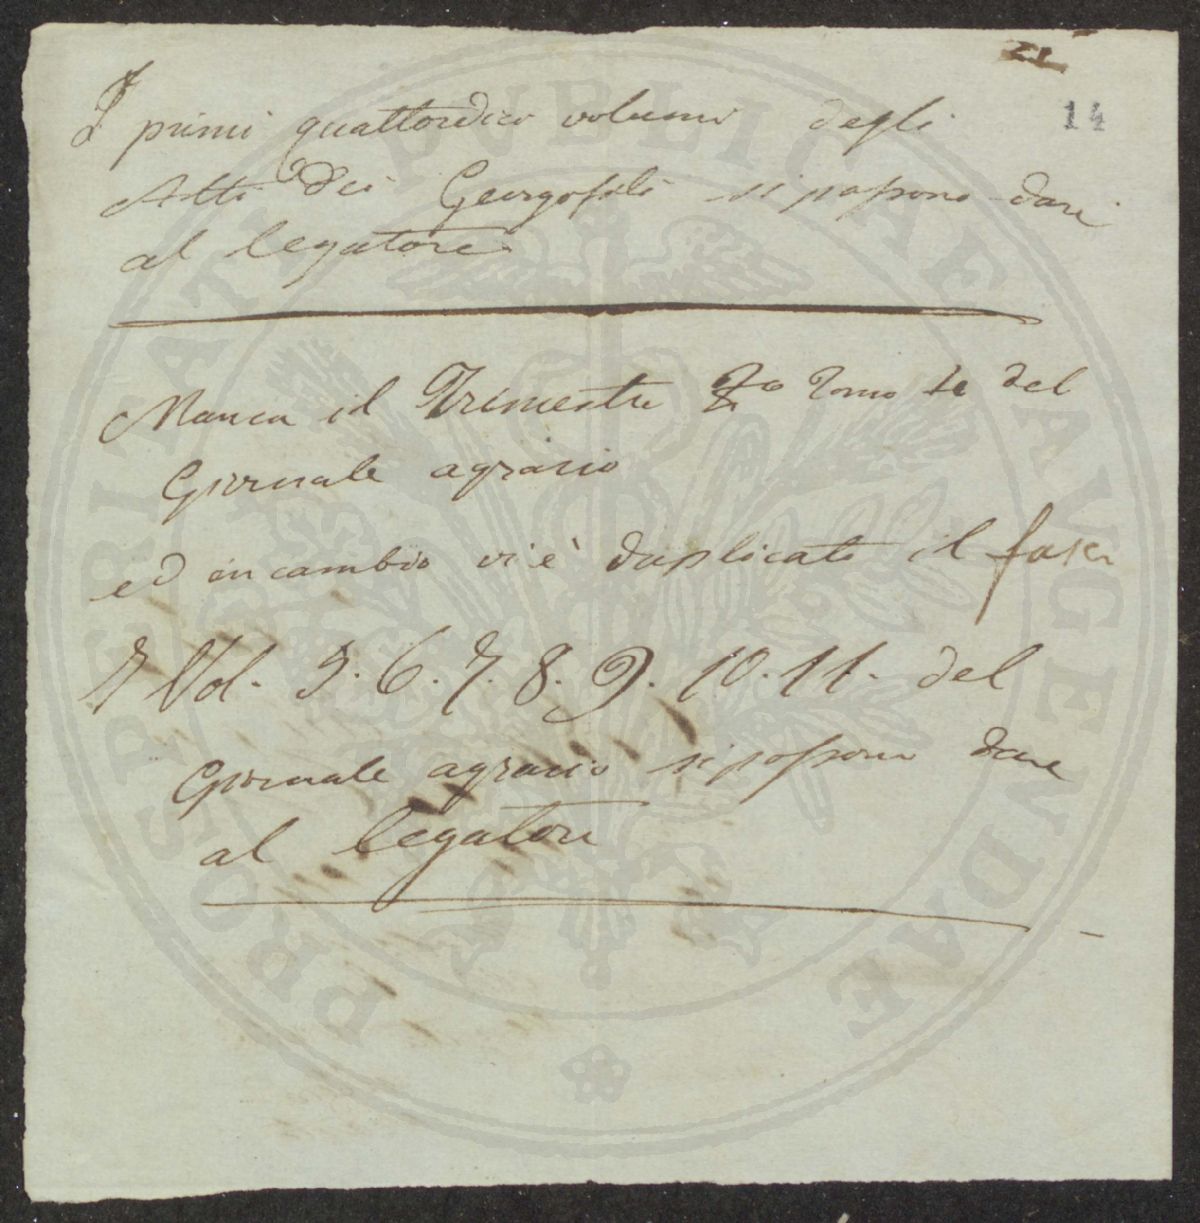 14
I primi quattordici volumi degli
Atti dei Georgofili si possono dare
al legatore
Manca il Trimestre 2º Tomo 4º del
Giornale agrario
ed in cambio vi è duplicato il fasc.
7 Vol. 5. 6. 7. 8. 9. 10. 11. del
Giornale agrario si possono dare
al legatore
PROSPERITATI PVBLICAE AVGENDAE